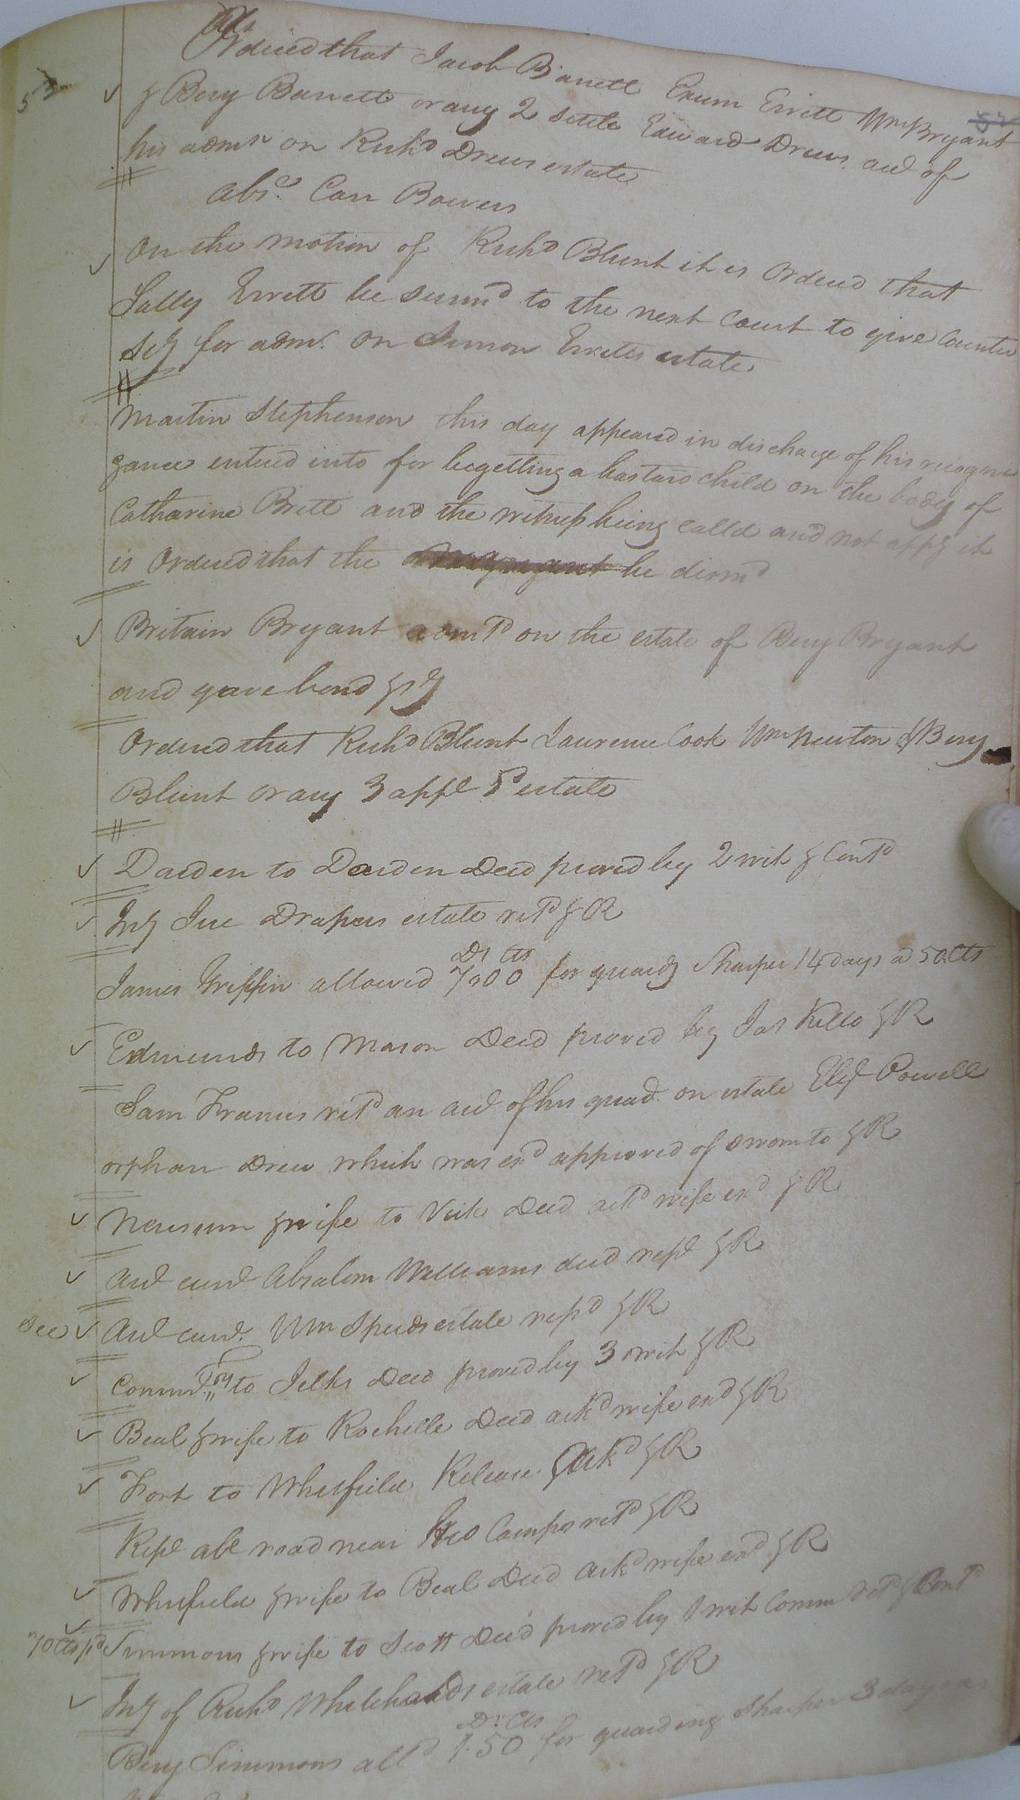 Ordered that Jacob Barrett Exum Evritt Wm Bryant
& Benj Barrett or any 2 settle Edward Drews acct of
his admn on Richd Drews estate
abst. Carr Bowers
On the motion of Richd Blunt it is Ordered that
Sally Evrett be summd to the next Court to give Counter
sey for admn. on Simon Evretts estate
Martin Stephenson this day appeared in discharge of his recogni
zance entered into for begetting a bastard child on the body of
Catharine Britt and the witness being calld and not appg it
is Ordered that the be dismd
Britain Bryant admtd on the estate of Benj Bryant
and gave bond & sy
Ordered that Richd Blunt Laurence Cook Wm Newton & Benj
Blunt or any 3 appe sd estate
Darden to Darden Deed proved by 2 wit & Contd
Invy Drapers estate retd & R
Dr Cts
James Griffin allowed 7.00 for guardg Sharper 14 days a 50 Cts
Edmunds to Mason Deed proved by Jas Kello & R
Sam Francis retd an acct of his guard. on estate Eliz Powell
orphan Drew which was exd approved of sworn to & R
Newsum & wife to Deed ackd wife exd & R
Acct currt Absalom Williams decd retd & R
Acct currt. Wm Speeds estate retd & R
to Jelks Deed proved by 3 wit & R
Beal & wife to Rochelle Deed ackd wife exd & R
Fort to Whitfield Release Ackd & R
Rept abt road near Camps retd & R
Whitfield & wife to Beal Deed ackd wife exd & R
70 Cts pd Simmons & wife to Scott Deed proved by 1 wit Commn retd & Contd
Invy of Richd Whiteheads estate retd & R
Dr Cts
Benj Simmons alld 1.50 for guarding Sharper 3 days